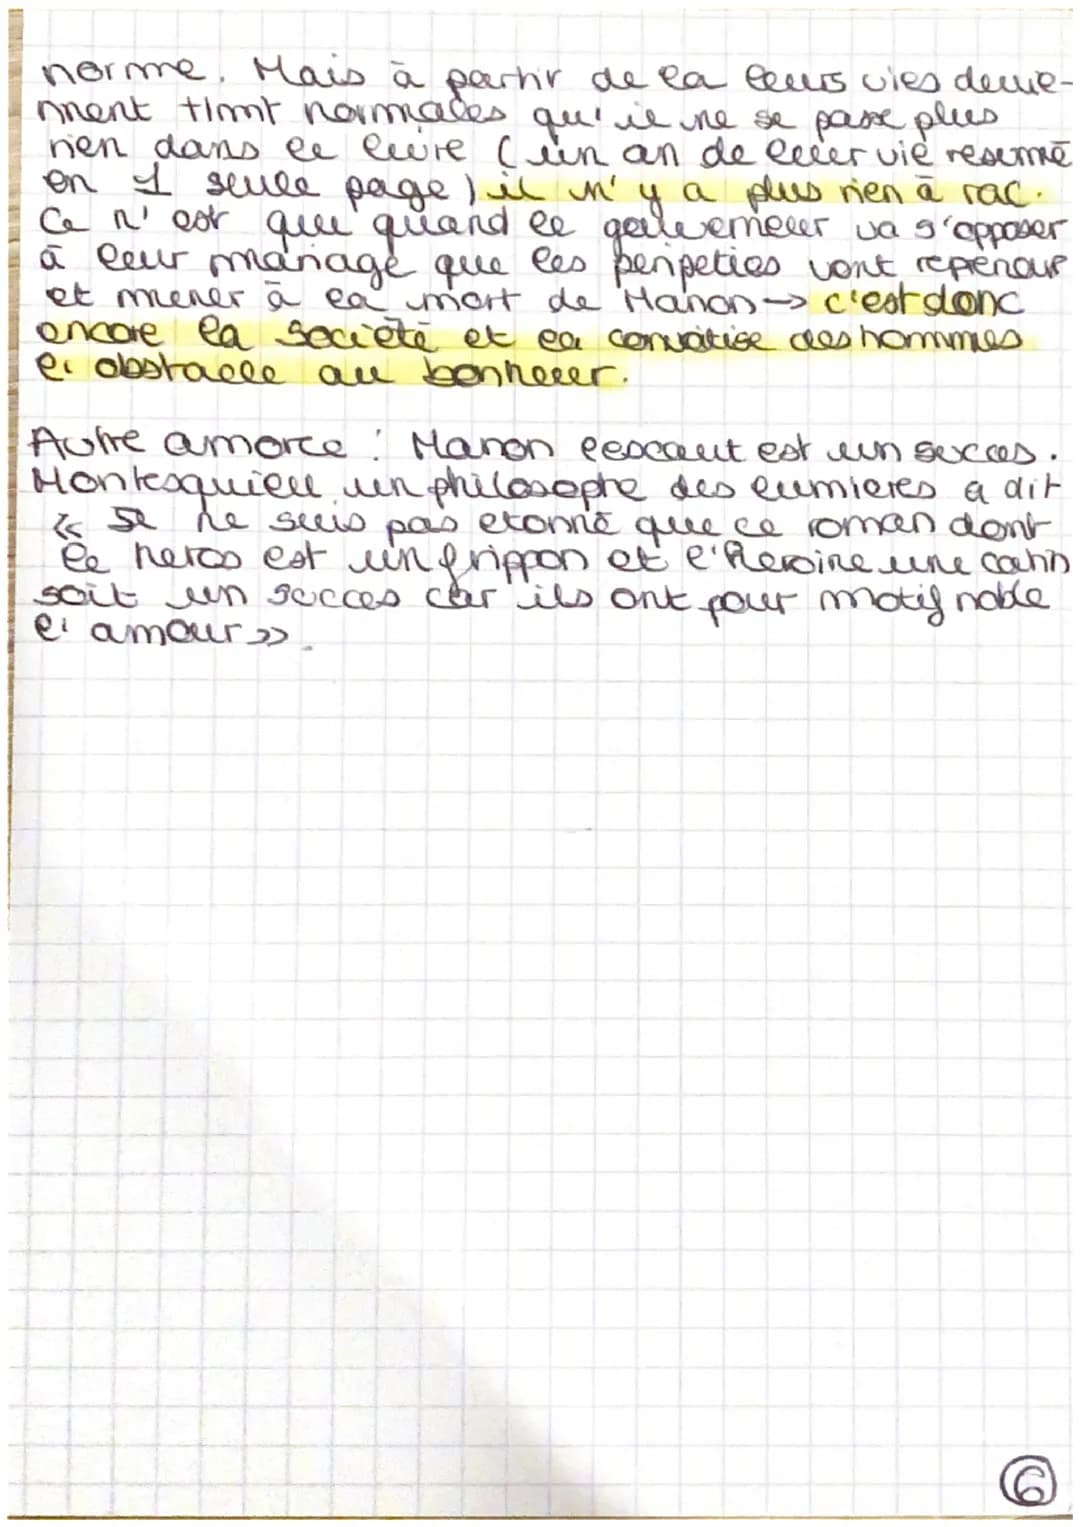 norme. Mais à partir de la leurs vies devie-
nnent tlmt normales qu'il ne se passe plus
rien dans le livre (un an de leur vie résumé
en 1 seule page) il n'y a plus rien à rac.
Ce n'est que quand le gouverneur va s'opposer
à leur mariage que les peripeties vont reprendre
et mener à la mort de Manon → c'est donc
encore la société et la convoitise des hommes
l'obstacle au bonheur.
Autre amorce : Manon lescaut est un succes.
Montesquieu un philosophe des lumieres a dit
« Je ne suis pas etonné que ce roman dont
le heros est un frippon et l'heroine une catin
soit un succes car ils ont pour motif noble
l'amour ».
6